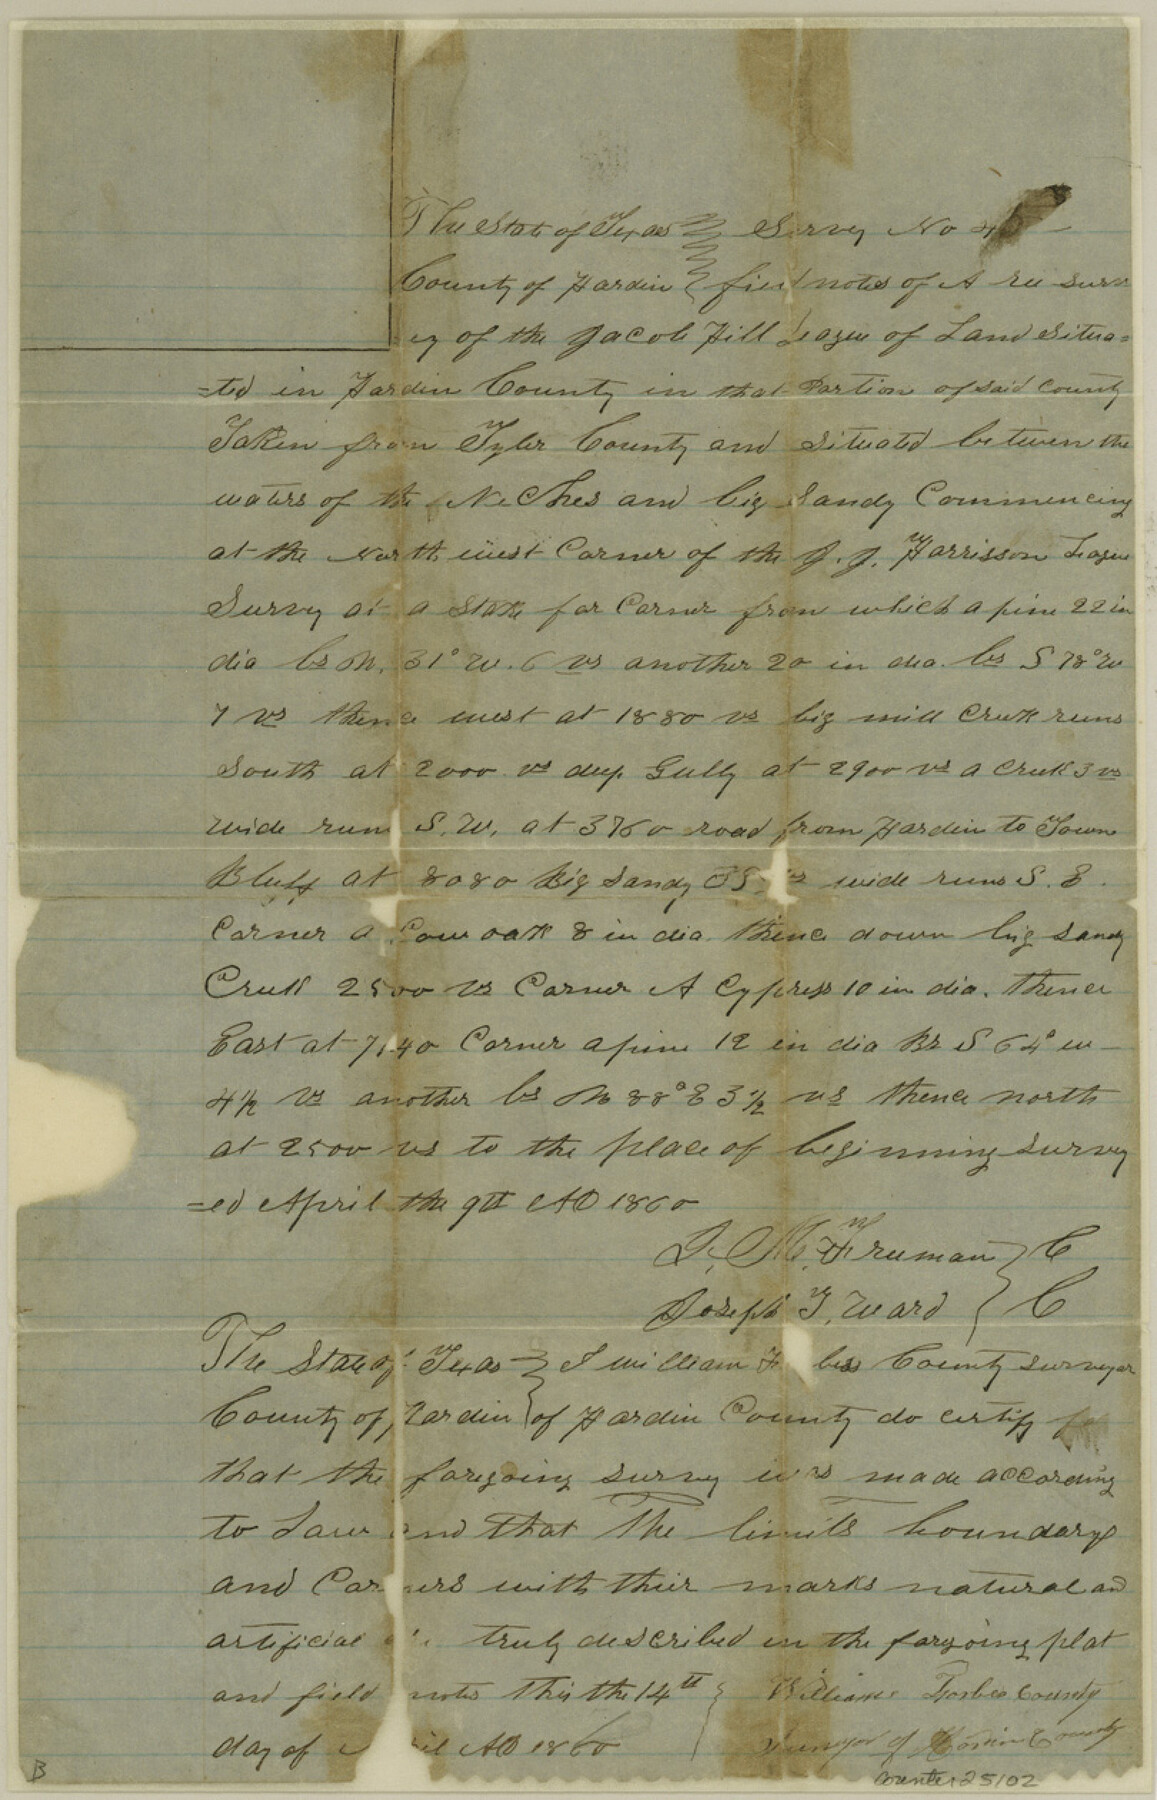 The State of Texas Survey No 4
County of Hardin field notes of A re surv
ey of the Jacob Hill League of Land Situa=
=ted in Hardin County in that Portion of said county
Taken from Tyler County and Situated between the
waters of the Neches and big Sandy Commencing
at the North west Corner of the J. J. Harrisson League
Survey at a Stake for Corner from which a pine 22 in
dia bs N. 31° W. 6 vs another 20 in dia. bs S 78° W
7 vs thence west at 1880 vs big mill Creek runs
South at 2000 vs deep Gully at 2900 vs a Creek 3 vs
wide runs S. W. at 3760 road from Hardin to Town
Bluff at 8080 Big Sandy wide runs S. E.
Corner a oak 8 in dia. thence down big sandy
Creek 2500 vs Corner A Cypress 10 in dia. thence
East at 7140 Corner a pine 12 in dia Bs S 64° w
4½ vs another bs N 88° E 3½ vs thence north
at 2500 vs to the place of beginning survey
=ed April the 9th AD 1860
J. M. Freeman C
Joseph T. Ward C
The State of Texas I william F bes County surveyor
County of Hardin of Hardin County do certify
that the foregoing survey was made according
to Law and that The limits boundary
and Corners with thier marks natural and
artificial truly described in the forgoing plat
and field notes this the 14th William Forbes County
day of April AD 1860 Surveyor of Hardin County
B
Counter 25102